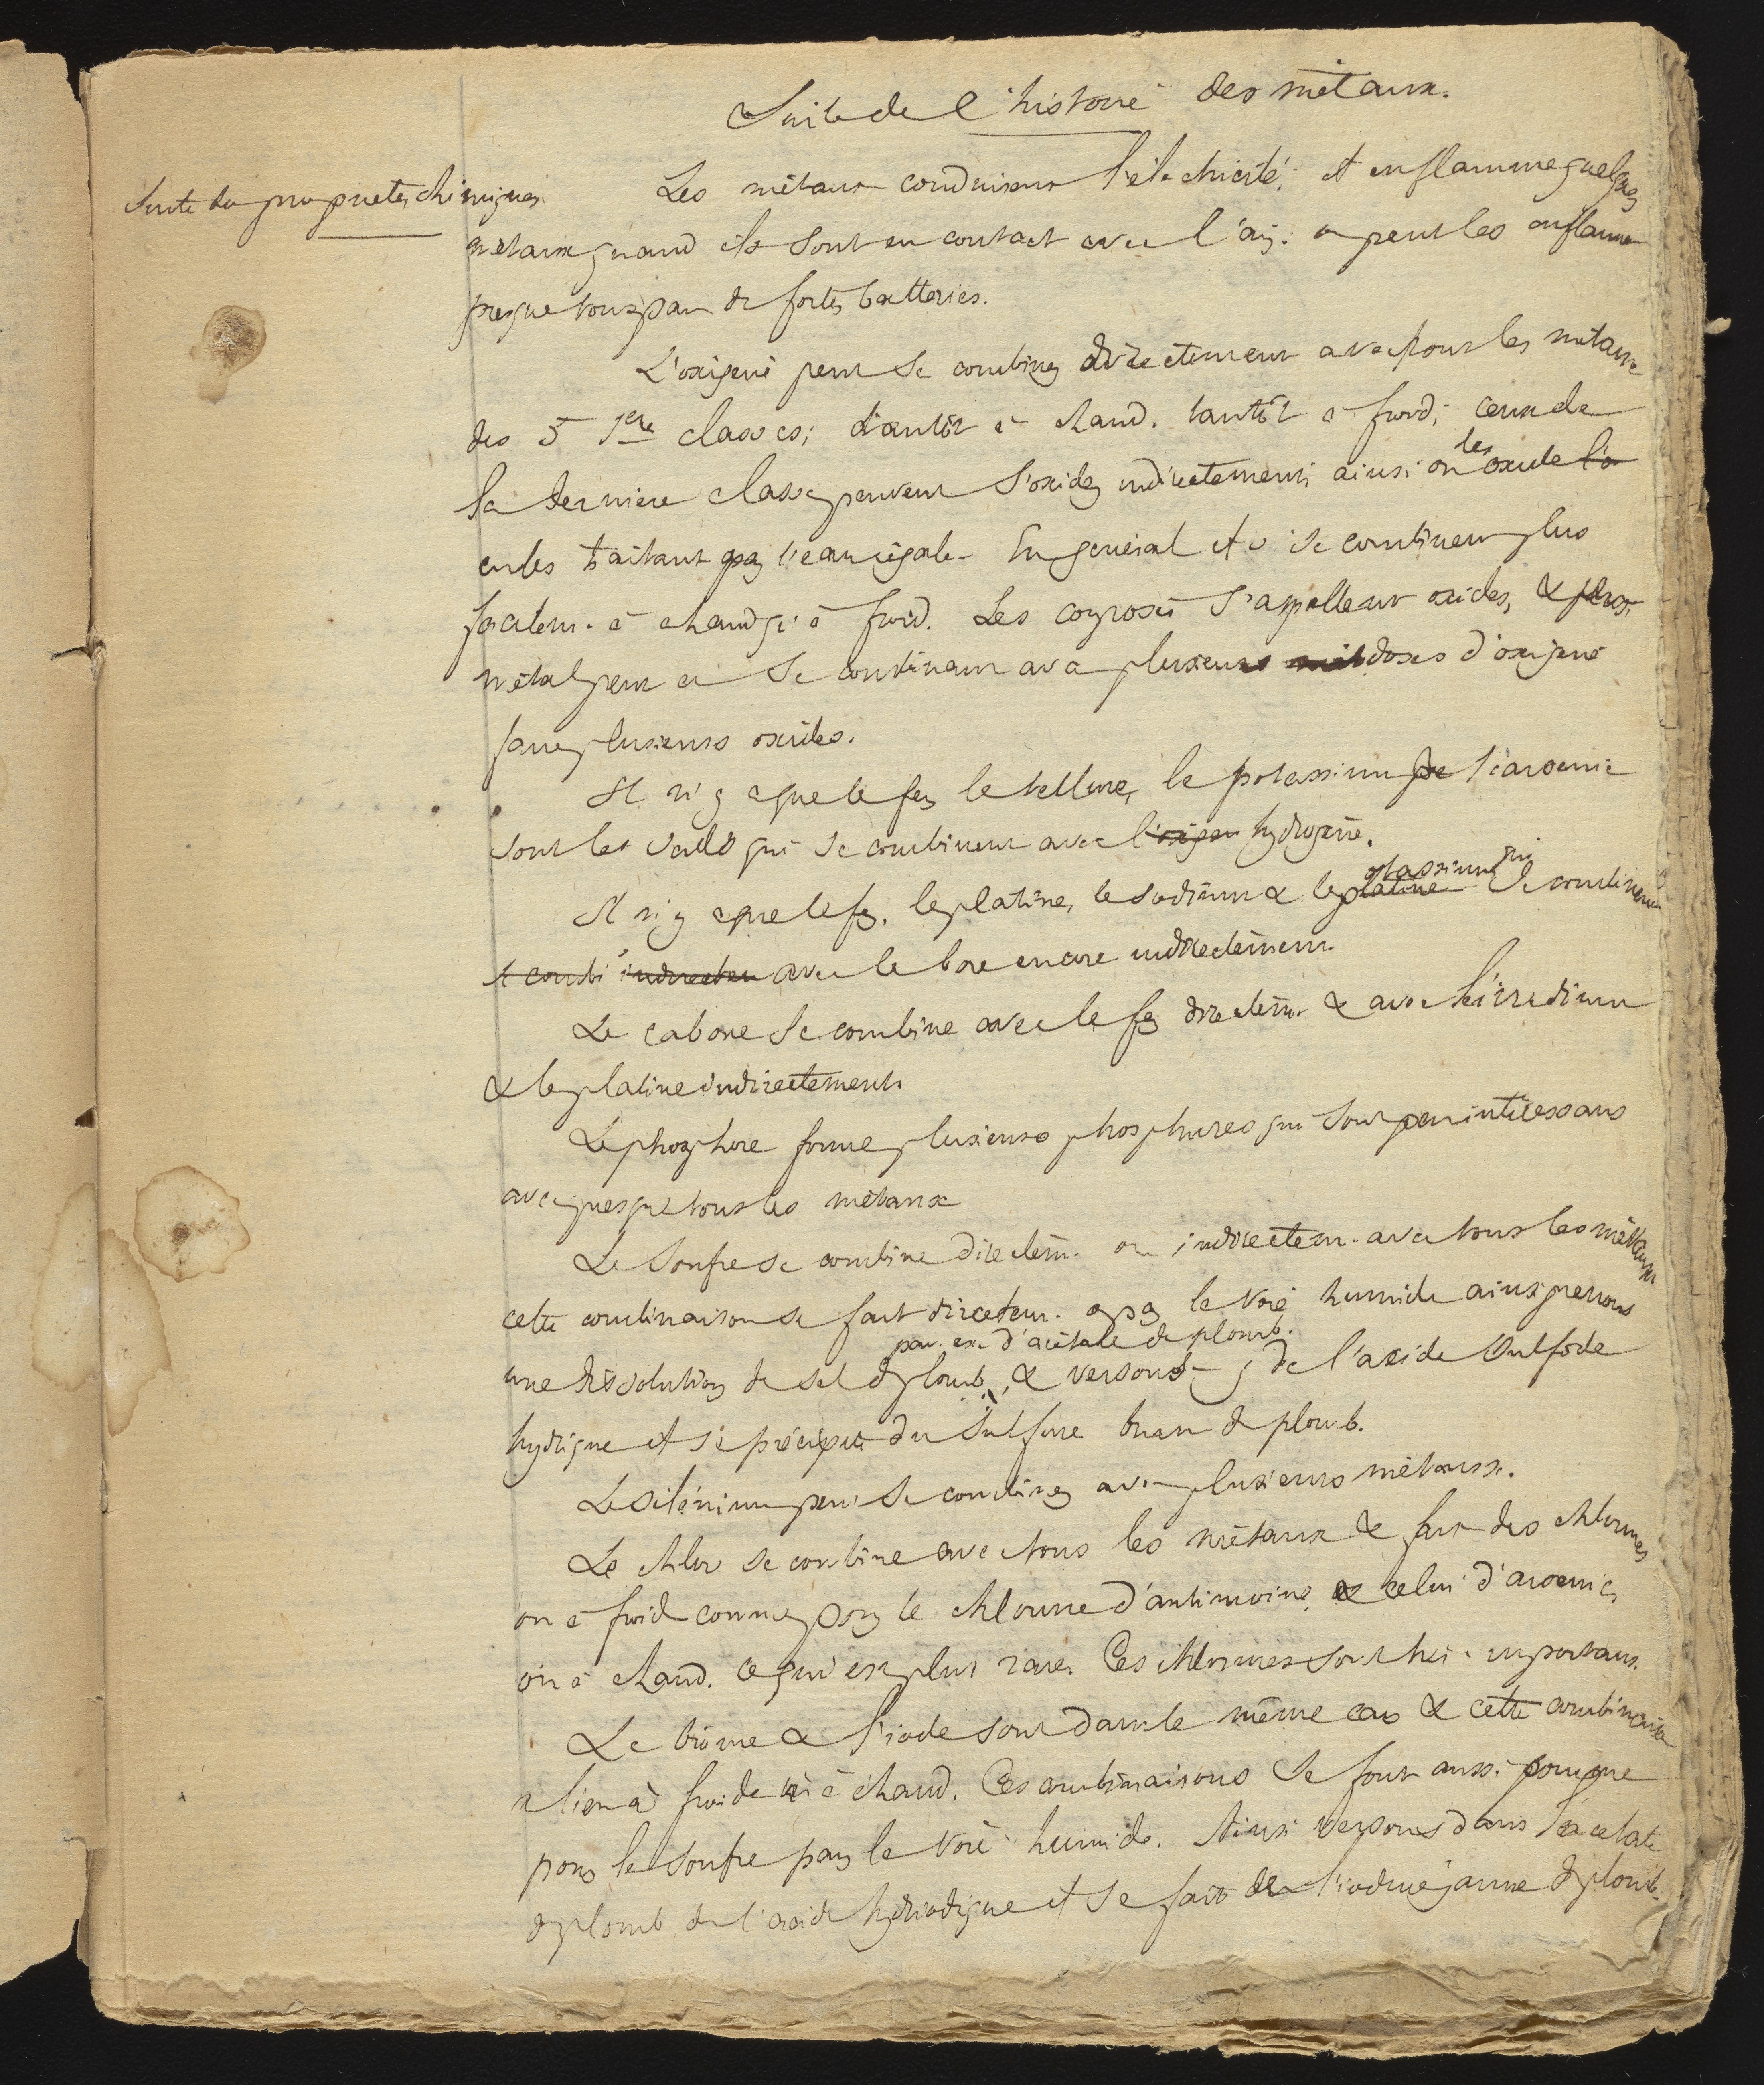 Suite de l'histoire des métaux.
Suite des propriétés chimiques
Les métaux conduisent l'électricité, et enflamme quelques
métaux quand ils sont en contact avec l'air. on peut les enflammer
presque tous par de fortes batteries.
L'oxigène peut se combiner directement avec tous les métaux
des 5 1ere classes; tantôt à chaud. tantôt à froid; ceux de
la dernière classe peuvent s'oxider indirectement; ainsi on les oxide l'o
en les traitant par l'eau régale. En général ils se combinent plus
facilem. à chaud qu'à froid. Les composés s'appellent oxides, &
métal peut en se combinant avec plusieurs doses d'oxigène
former plusieurs oxides.
Il n'y a que le fer, le tellure, le potassium & l'arsenic
sont les seuls qui se combinent avec l'oxigen hydrogène.
Il n'y a que le fer, le platine, le sodium & le platine potassium qui se combinent
se combi indirectem avec le bore encore indirectement.
Le cabone se combine avec le fer directem. & avec l'irridium
& le platine indirectement.
Le phosphore forme plusieurs phosphures qui sont peu intéressans
avec presque tous les métaux
Le soufre se combine directem. ou indirectem. avec tous les métaux
cette combinaison se fait directem. par la voie humide ainsi prenons
une dissolution de sel de plomb, par. ex. d'acétate de plomb. & versons-y de l'acide sulfide
hydrique il se précipite du sulfure brun de plomb.
Le sélénium peut se combiner avec plusieurs métaux.
Le chlor se combine avec tous les métaux & fait des chlorures
ou à froid comme pour le chlorure d'antimoine & celui d'arsenic,
ou à chaud. ce qui est plus rare. Ces chlorures sont très-importans.
Le brôme & l'iode sont dans le même cas & cette combinaison
a lieu à froid et à chaud. Ces combinaisons se font aussi comme
pour le soufre par la voie humide. Ainsi versons dans l'acétate
de plomb de l'acide hydriodique il se fait de l'iodure jaune de plomb.